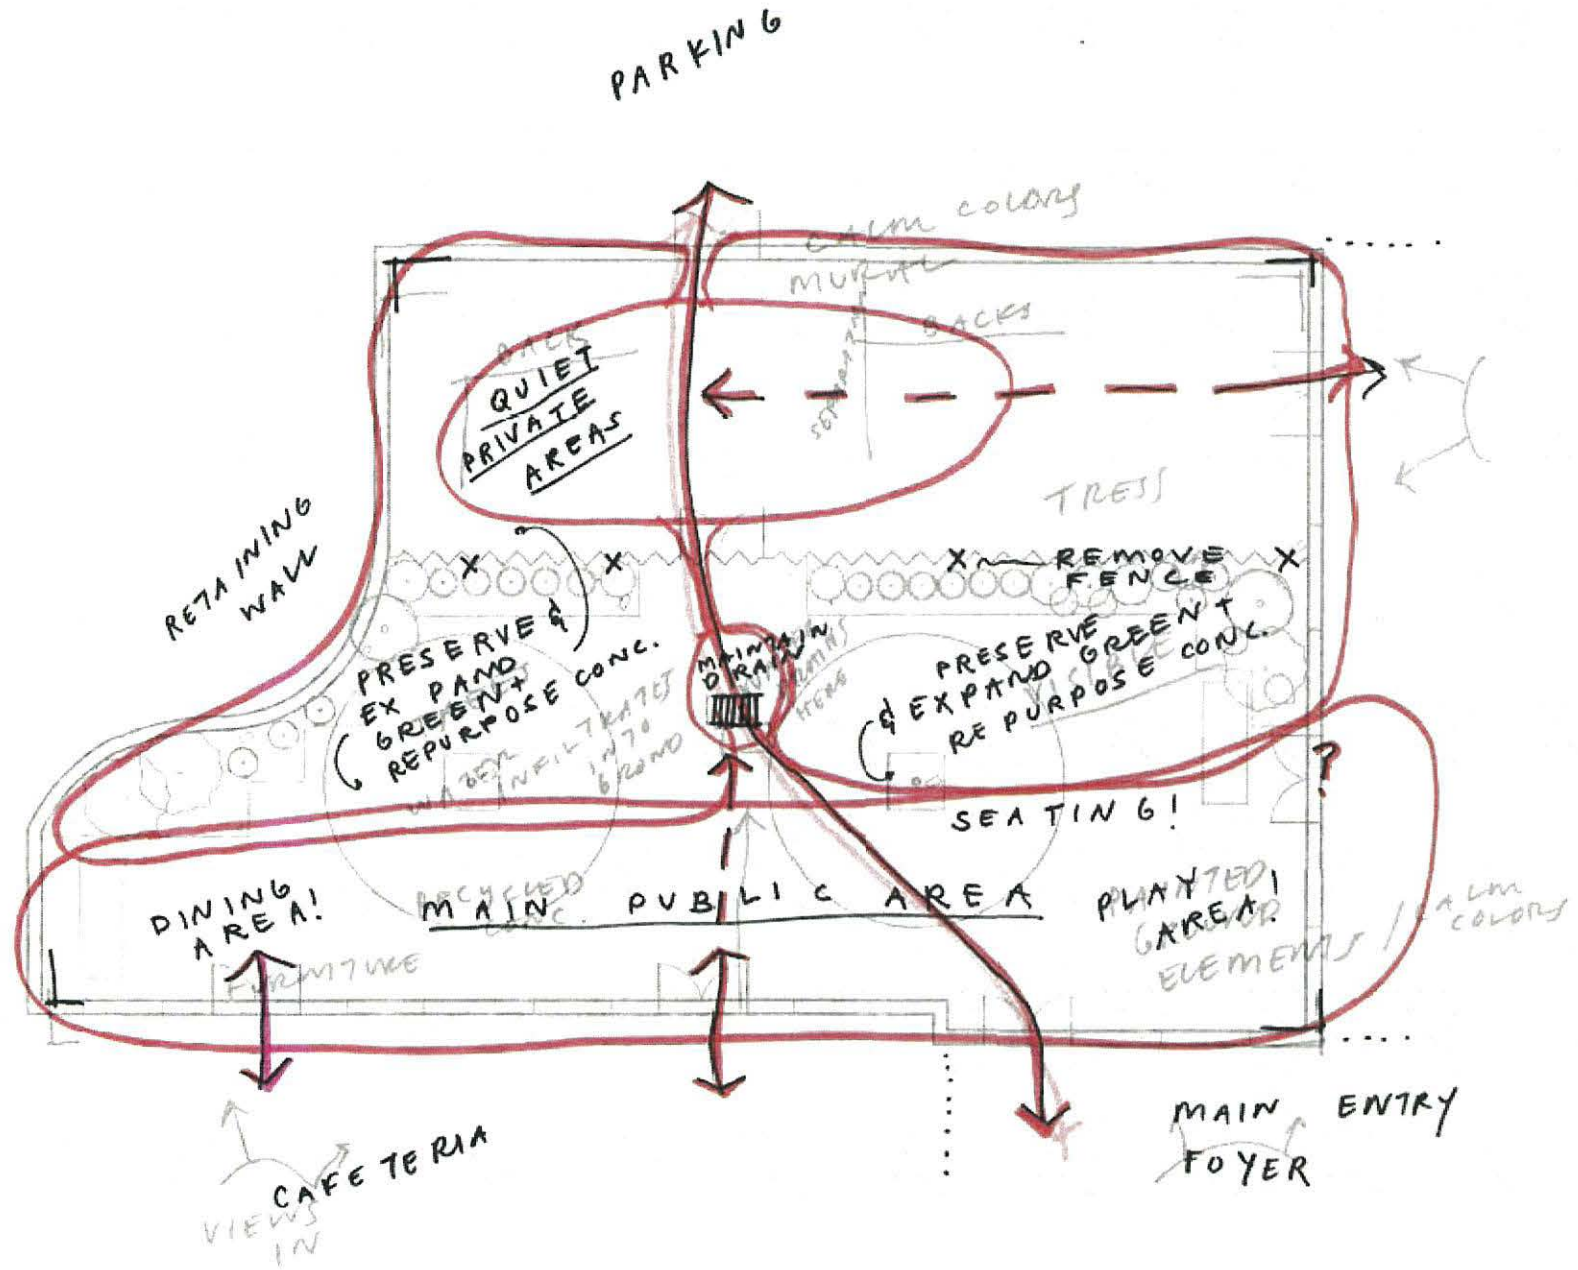 PARKING
CALM COLORS
MURAL
BACKS
BACK
QUIET
PRIVATE
AREAS
TRESS
RETAINING
WALL
X
X
X
REMOVE
X
FENCE
PRESERVE &
EXPAND
GREEN +
REPURPOSE CONC.
MAINTAIN
DRAIN
HERE
PRESERVE
& EXPAND GREEN +
REPURPOSE CONC.
VISIBLE
WATER
INFILTRATES
INTO
GROND
?
SEATING!
DINING
AREA!
RECYCLED
CONC.
MAIN PUBLIC AREA
PLAY
AREA!
PLANTED
ELEMENTS
CALM
COLORS
FURNITURE
CAFETERIA
VIEWS
IN
MAIN ENTRY
FOYER